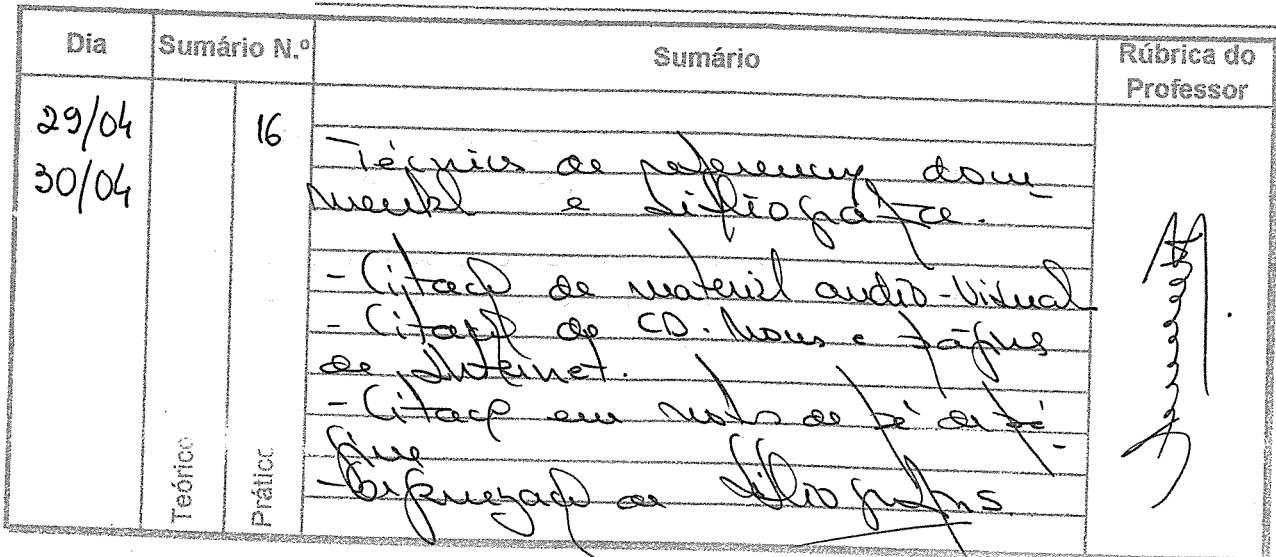 Dia Sumário N.º Sumário Rúbrica do Professor
29/04 16
30/04
Técnicas de referência docu-
mental e bibliográfica.
- Citação de material audio-visual
- Citação de CD-Roms e páginas
de Internet.
- Citação em notas de pé de pá-
gina
- Organização de bibliografias.
Teórico Prático